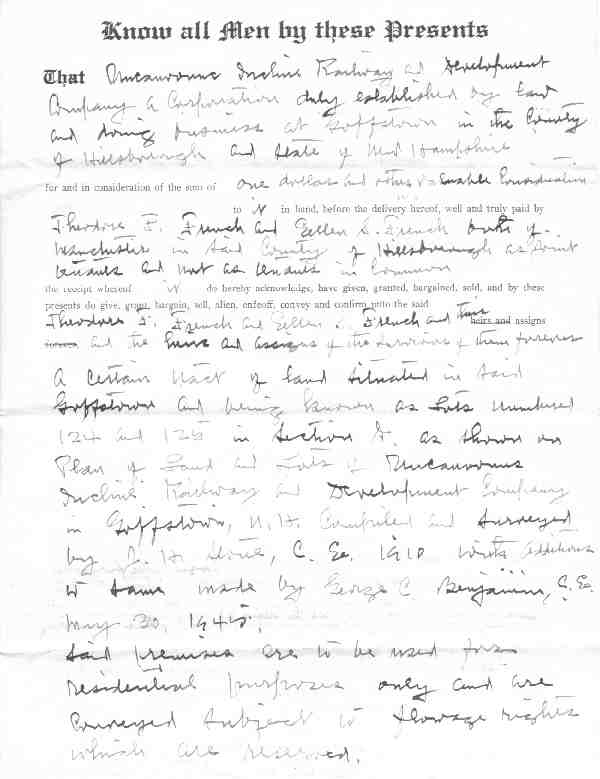 Know all Men by these Presents
That Uncanoonuc Incline Railway and Development
Company a Corporation duly established by Law
and doing business at Goffstown in the County
of Hillsborough and State of New Hampshire
for and in consideration of the sum of one dollar and other valuable Consideration
to it in hand, before the delivery hereof, well and truly paid by
Theodore F. French and Ellen S. French both of
Manchester in said County of Hillsborough as Joint
tenants and not as tenants in Common
the receipt whereof it do hereby acknowledge, have given, granted, bargained, sold, and by these
presents do give, grant, bargain, sell, alien, enfeoff, convey and confirm unto the said
Theodore F. French and Ellen S. French and their heirs and assigns
forever, and the heirs and assigns of the survivor of them forever
A certain tract of land situated in said
Goffstown and being known as Lots numbered
124 and 125 in Section as shown on
Plan of Land and Lots of Uncanoonuc
Incline Railway and Development Company
in Goffstown, N.H. Compiled and Surveyed
by H. C. E. 1910 with additions
to same made by George C. Benjamin, C. E.
May 30, 1945.
Said premises are to be used for
residential purposes only and are
Conveyed subject to flowage rights
which are reserved.